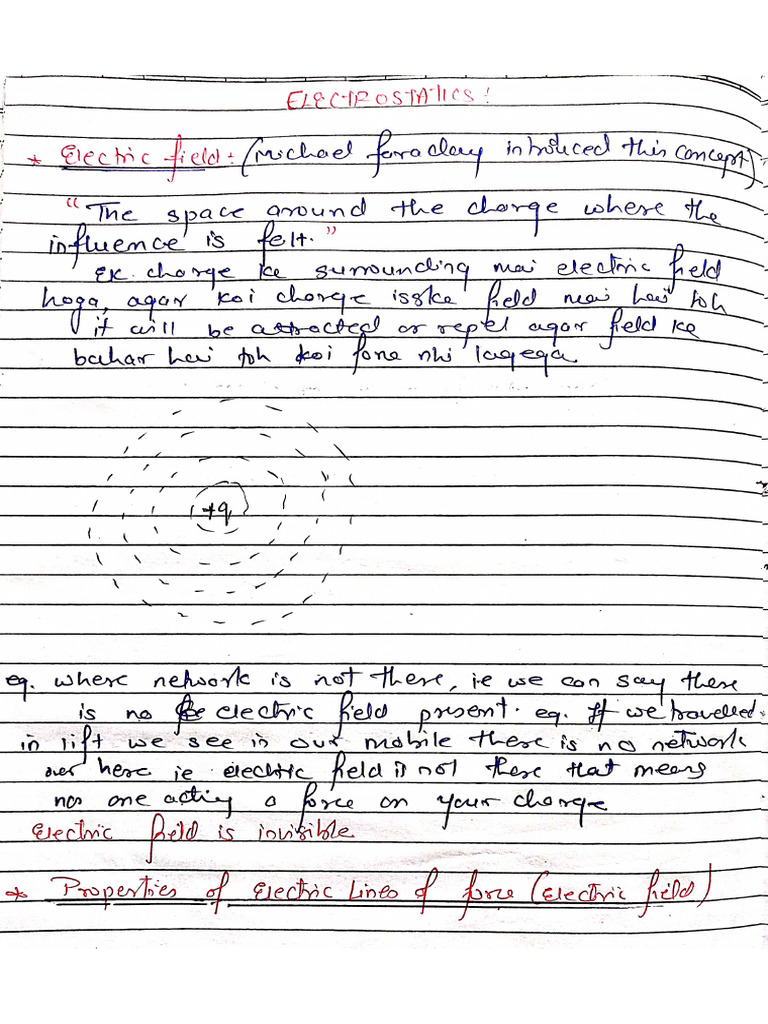 ELECTROSTATICS:
* Electric field: (Michael faraday introduced this concept)
"The space around the charge where the
influence is felt."
Ek charge ke surrounding mai electric field
hoga, agar koi charge isske field mai hai toh
it will be attracted or repel agar field ke
bahar hai toh koi force nhi lagega
+q
eg. where network is not there, ie we can say there
is no electric field present. eg. If we travelled
in lift we see in our mobile there is no network
here ie electric field is not there that means
no one acting a force on your charge
Electric field is invisible
* Properties of Electric Lines of force (electric field)